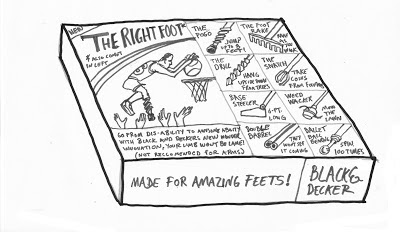 NEW!
THE RIGHT FOOT*
* ALSO COMES
IN LEFT
THE
POGO
JUMP
UP TO 8
FEET!
THE FOOT
RAKE
AS
THE
THE
DRILL
HANG
UPSIDE DOWN
FROM TREES
THE
SNATCH
TAKE
COINS
FROM
BASE
STEALER
6-FT.
LONG
WEED
WACKER
MOW
THE
LAWN
DOUBLE
BARREL
THEY
WON'T SEE
IT COMING
BALLET
BALL
BEARING
SPIN
100 TIMES
GO FROM DIS-ABILITY TO ANYONE ABILITY
WITH BLACK AND DECKERS NEW WONDER
INNOVATION, YOUR LIMB WON'T BE LAME!
(NOT RECCOMENDED FOR ARMS)
MADE FOR AMAZING FEETS!
BLACK&
DECKER